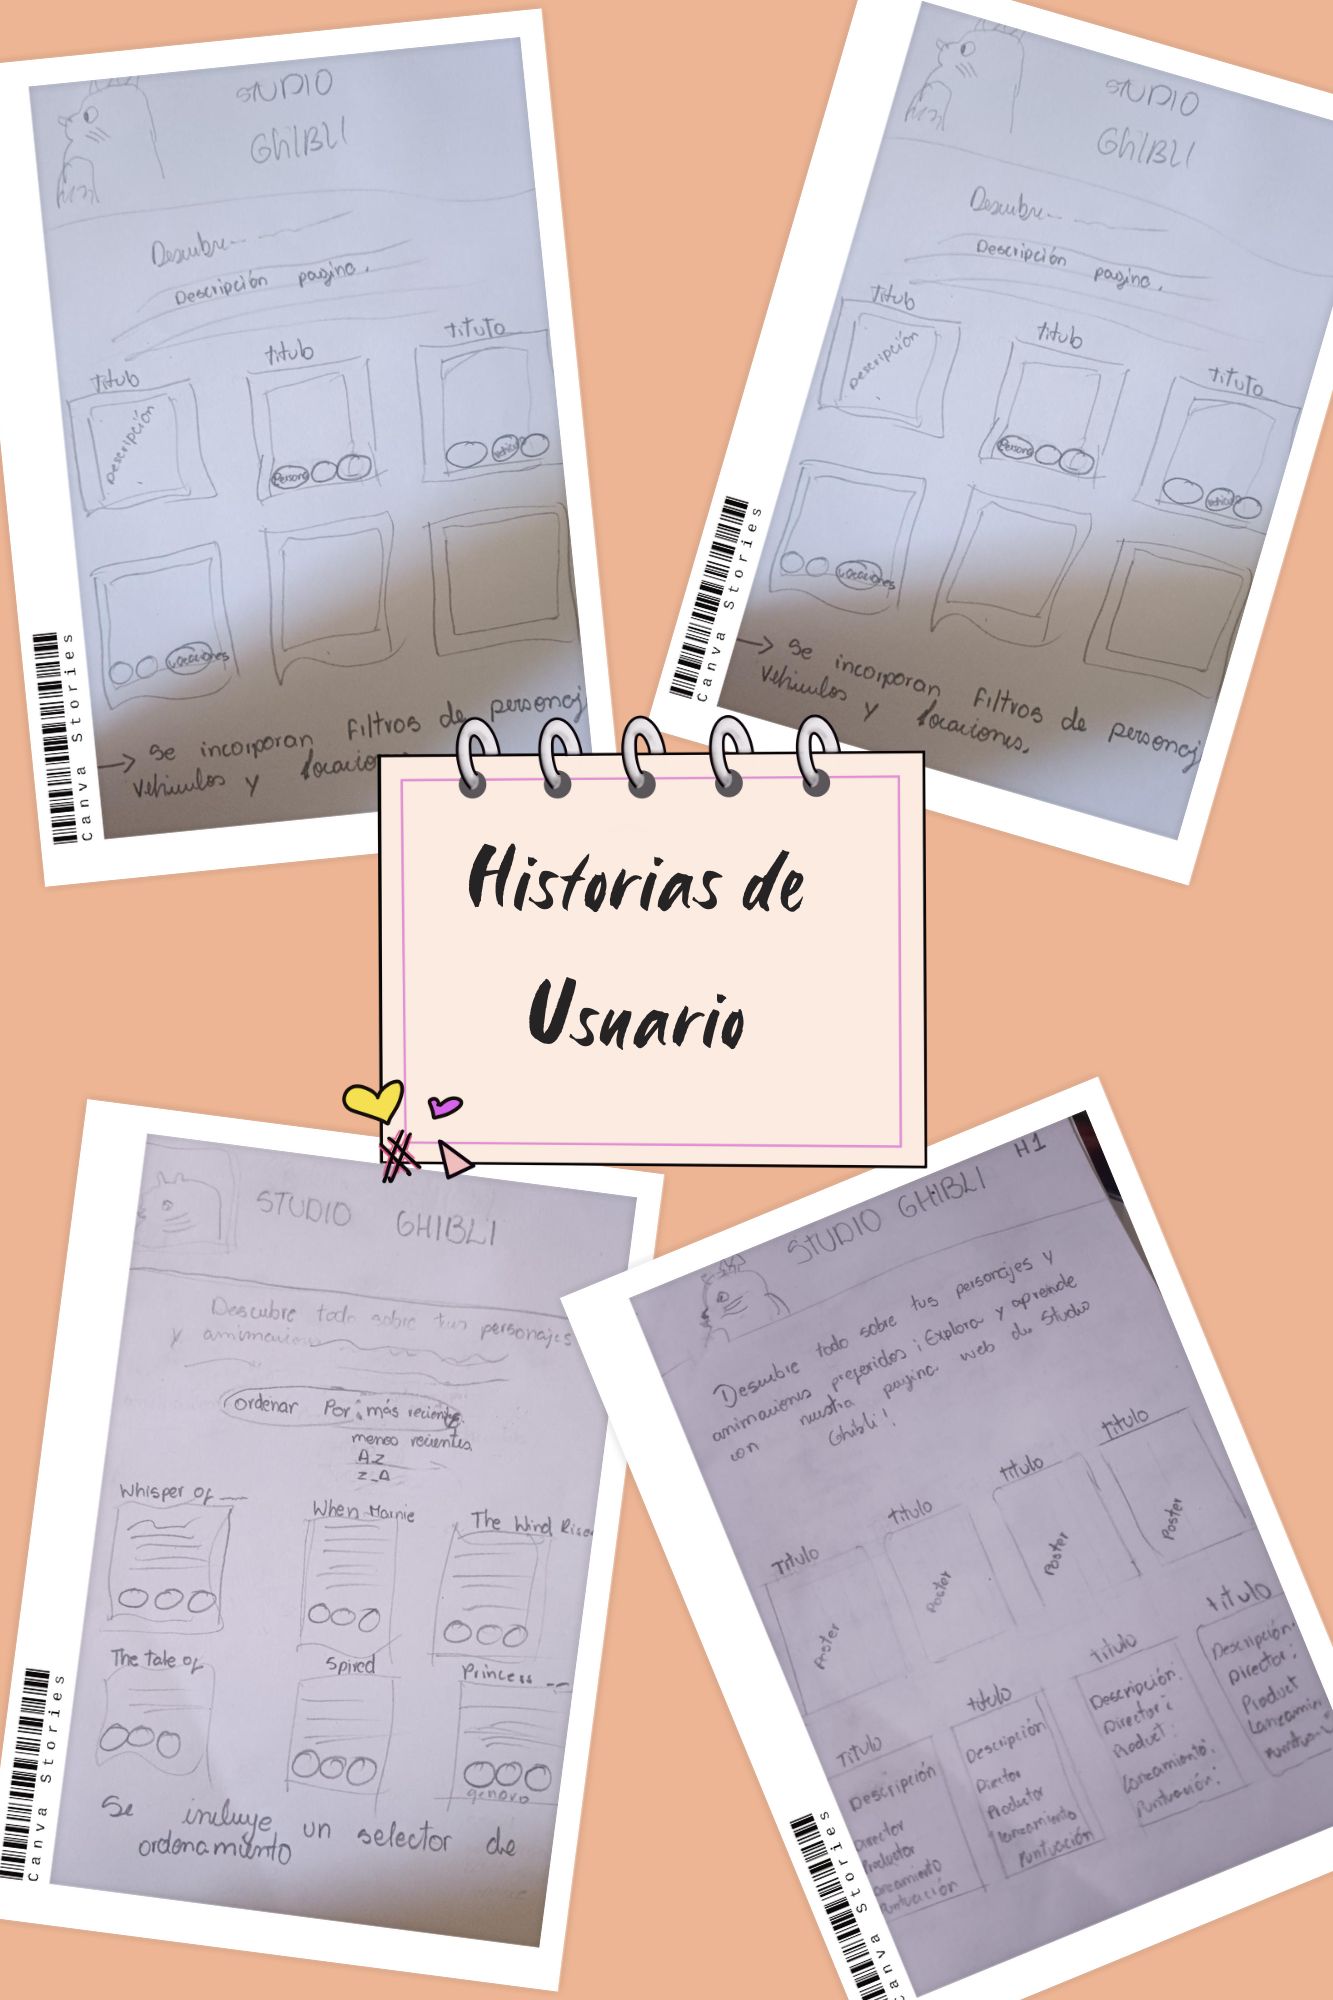 STUDIO
GhIBLI
Descubre
Descripción pagina.
titulo
titulo
titulo
Descripción
Persona
vehicul
Locaciones
→ Se incorporan Filtros de personaj
vehiculos y locacio
Canva Stories
STUDIO
GhIBLI
Descubre
Descripción pagina.
titulo
titulo
titulo
Descripción
Persona
vehicul
Locaciones
→ Se incorporan Filtros de personaj
vehiculos y locaciones.
Canva Stories
Historias de
Usuario
STUDIO GHIBLI
Descubre todo sobre tus personajes
y animaciones
ordenar Por: más recientes.
menos recientes
AZ
Z-A
Whisper of
When Marnie
The Wind Rise
The tale of
Spired
Princess --
genero
Se incluye un selector de
ordenamiento
Canva Stories
H1
STUDIO GHIBLI
Descubre todo sobre tus personajes y
animaciones preferidos ¡Explora y aprende
con nuestra pagina web de Studio
Ghibli!
Titulo
titulo
titulo
titulo
Poster
Poster
Poster
Poster
Titulo
Descripción
Director
Productor
Lanzamiento
Puntuación
titulo
Descripción
Director
Productor
lanzamiento
Puntuación
titulo
Descripción:
Director:
Product:
Lanzamiento:
Puntuación:
titulo
Descripción:
Director:
Product
Lanzamin
Canva Stories